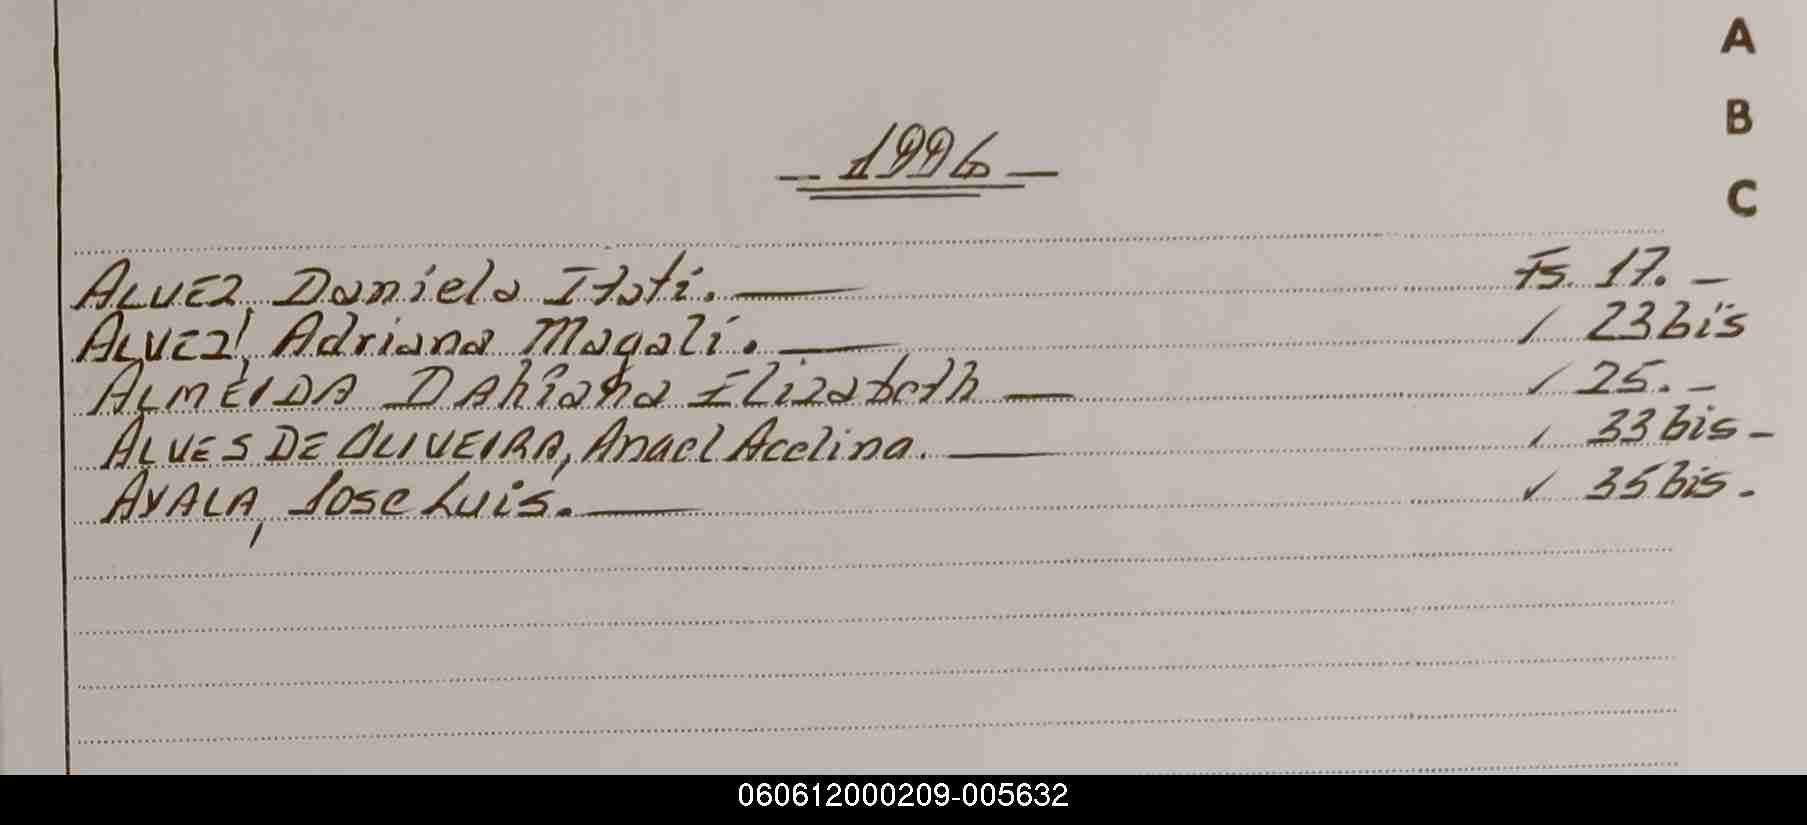 A
B
C
- 1996 -
ALVEZ, Daniela Itatí. — Fs. 17. -
ALVEZ, Adriana Magalí. — / 23 bis
ALMEIDA, DAhiana Elizabeth — / 25. -
ALVES DE OLIVEIRA, Anael Acelina. — / 33 bis -
AYALA, Jose Luis. — / 35 bis.
060612000209-005632